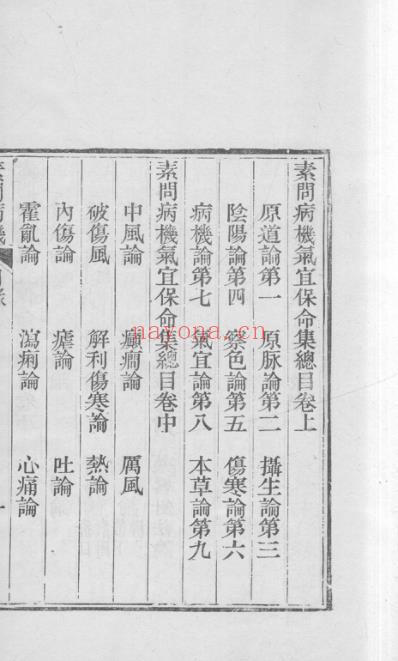 素問病機氣宜保命集總目卷上
原道論第一 原脉論第二 攝生論第三
陰陽論第四 察色論第五 傷寒論第六
病機論第七 氣宜論第八 本草論第九
素問病機氣宜保命集總目卷中
中風論 癲癎論 厲風
破傷風 解利傷寒論 熱論
內傷論 瘧論 吐論
霍亂論 瀉痢論 心痛論
nayona.cn